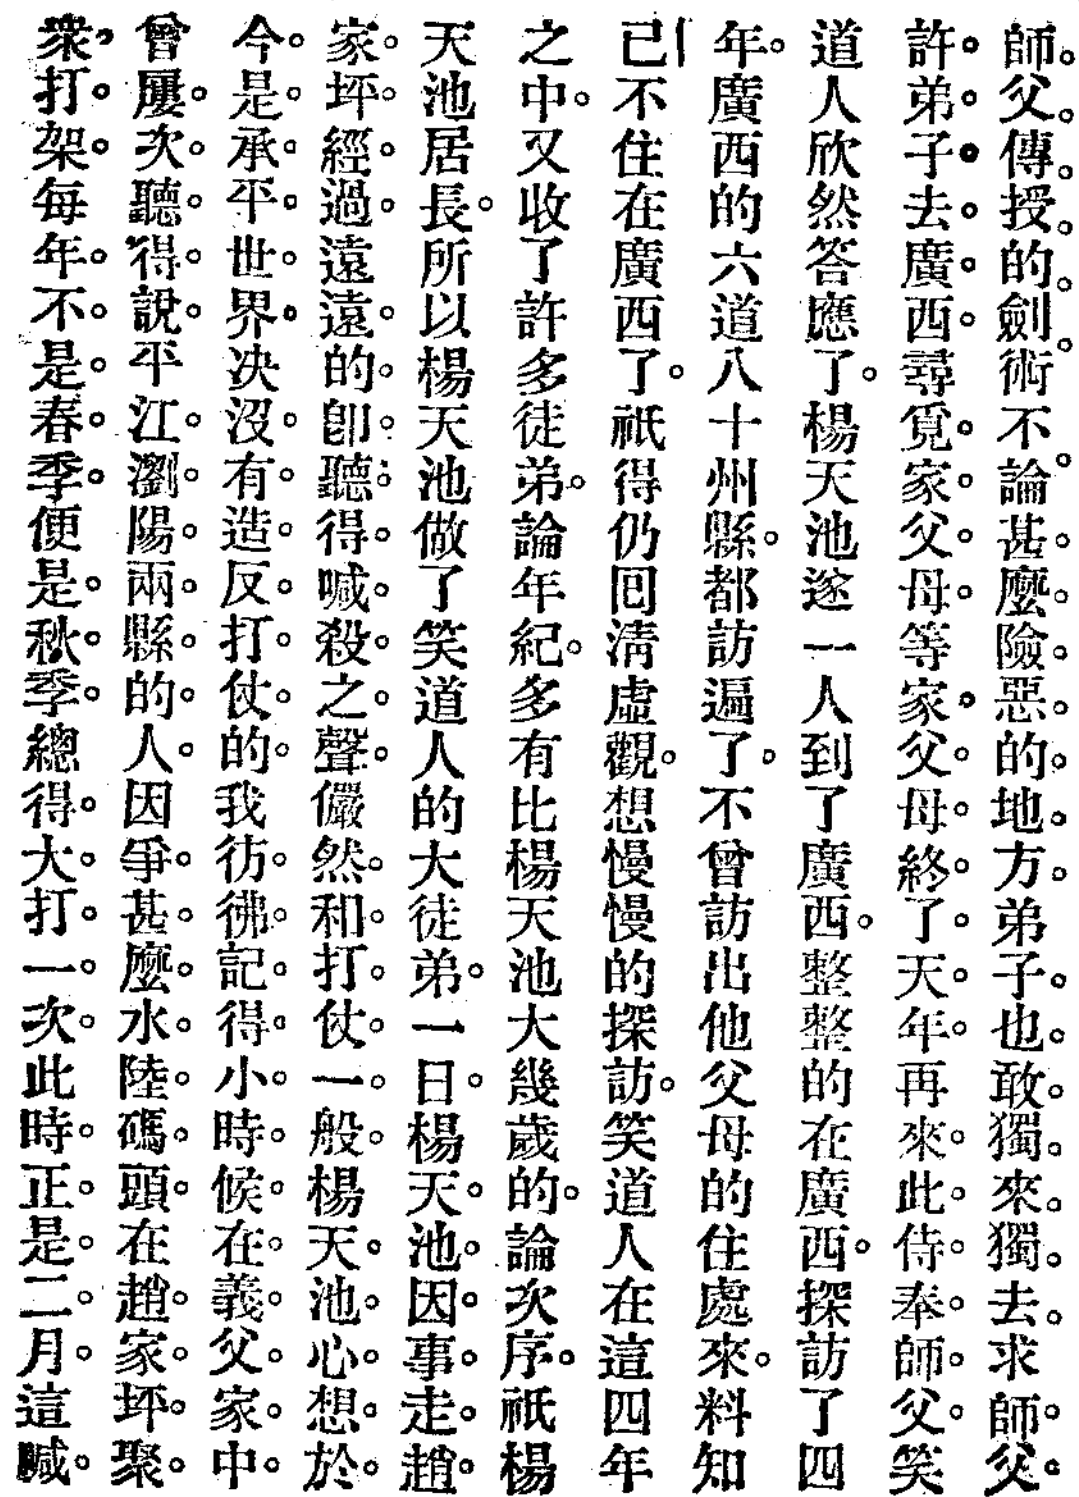 師父傳授的劍術不論甚麼險惡的地方弟子也敢獨來獨去求師父
許弟子去廣西尋覓家父母等家父母終了天年再來此侍奉師父笑
道人欣然答應了。楊天池遂一人到了廣西。整整的在廣西。探訪了四
年。廣西的六道八十州縣。都訪遍了。不曾訪出他父母的住處來。料知
已不住在廣西了。祇得仍回清虛觀。想慢慢的探訪。笑道人在這四年
之中。又收了許多徒弟。論年紀。多有比楊天池大幾歲的。論次序。祇楊
天池居長。所以楊天池做了笑道人的大徒弟。一日。楊天池因事走趙
家坪經過遠遠的卽聽得喊殺之聲儼然和打仗一般楊天池心想於
今是承平世界决沒有造反打仗的我彷彿記得小時候在義父家中
曾屢次聽得說平江瀏陽兩縣的人因爭甚麼水陸碼頭在趙家坪聚
衆打架每年不是春季便是秋季總得大打一次此時正是二月這喊